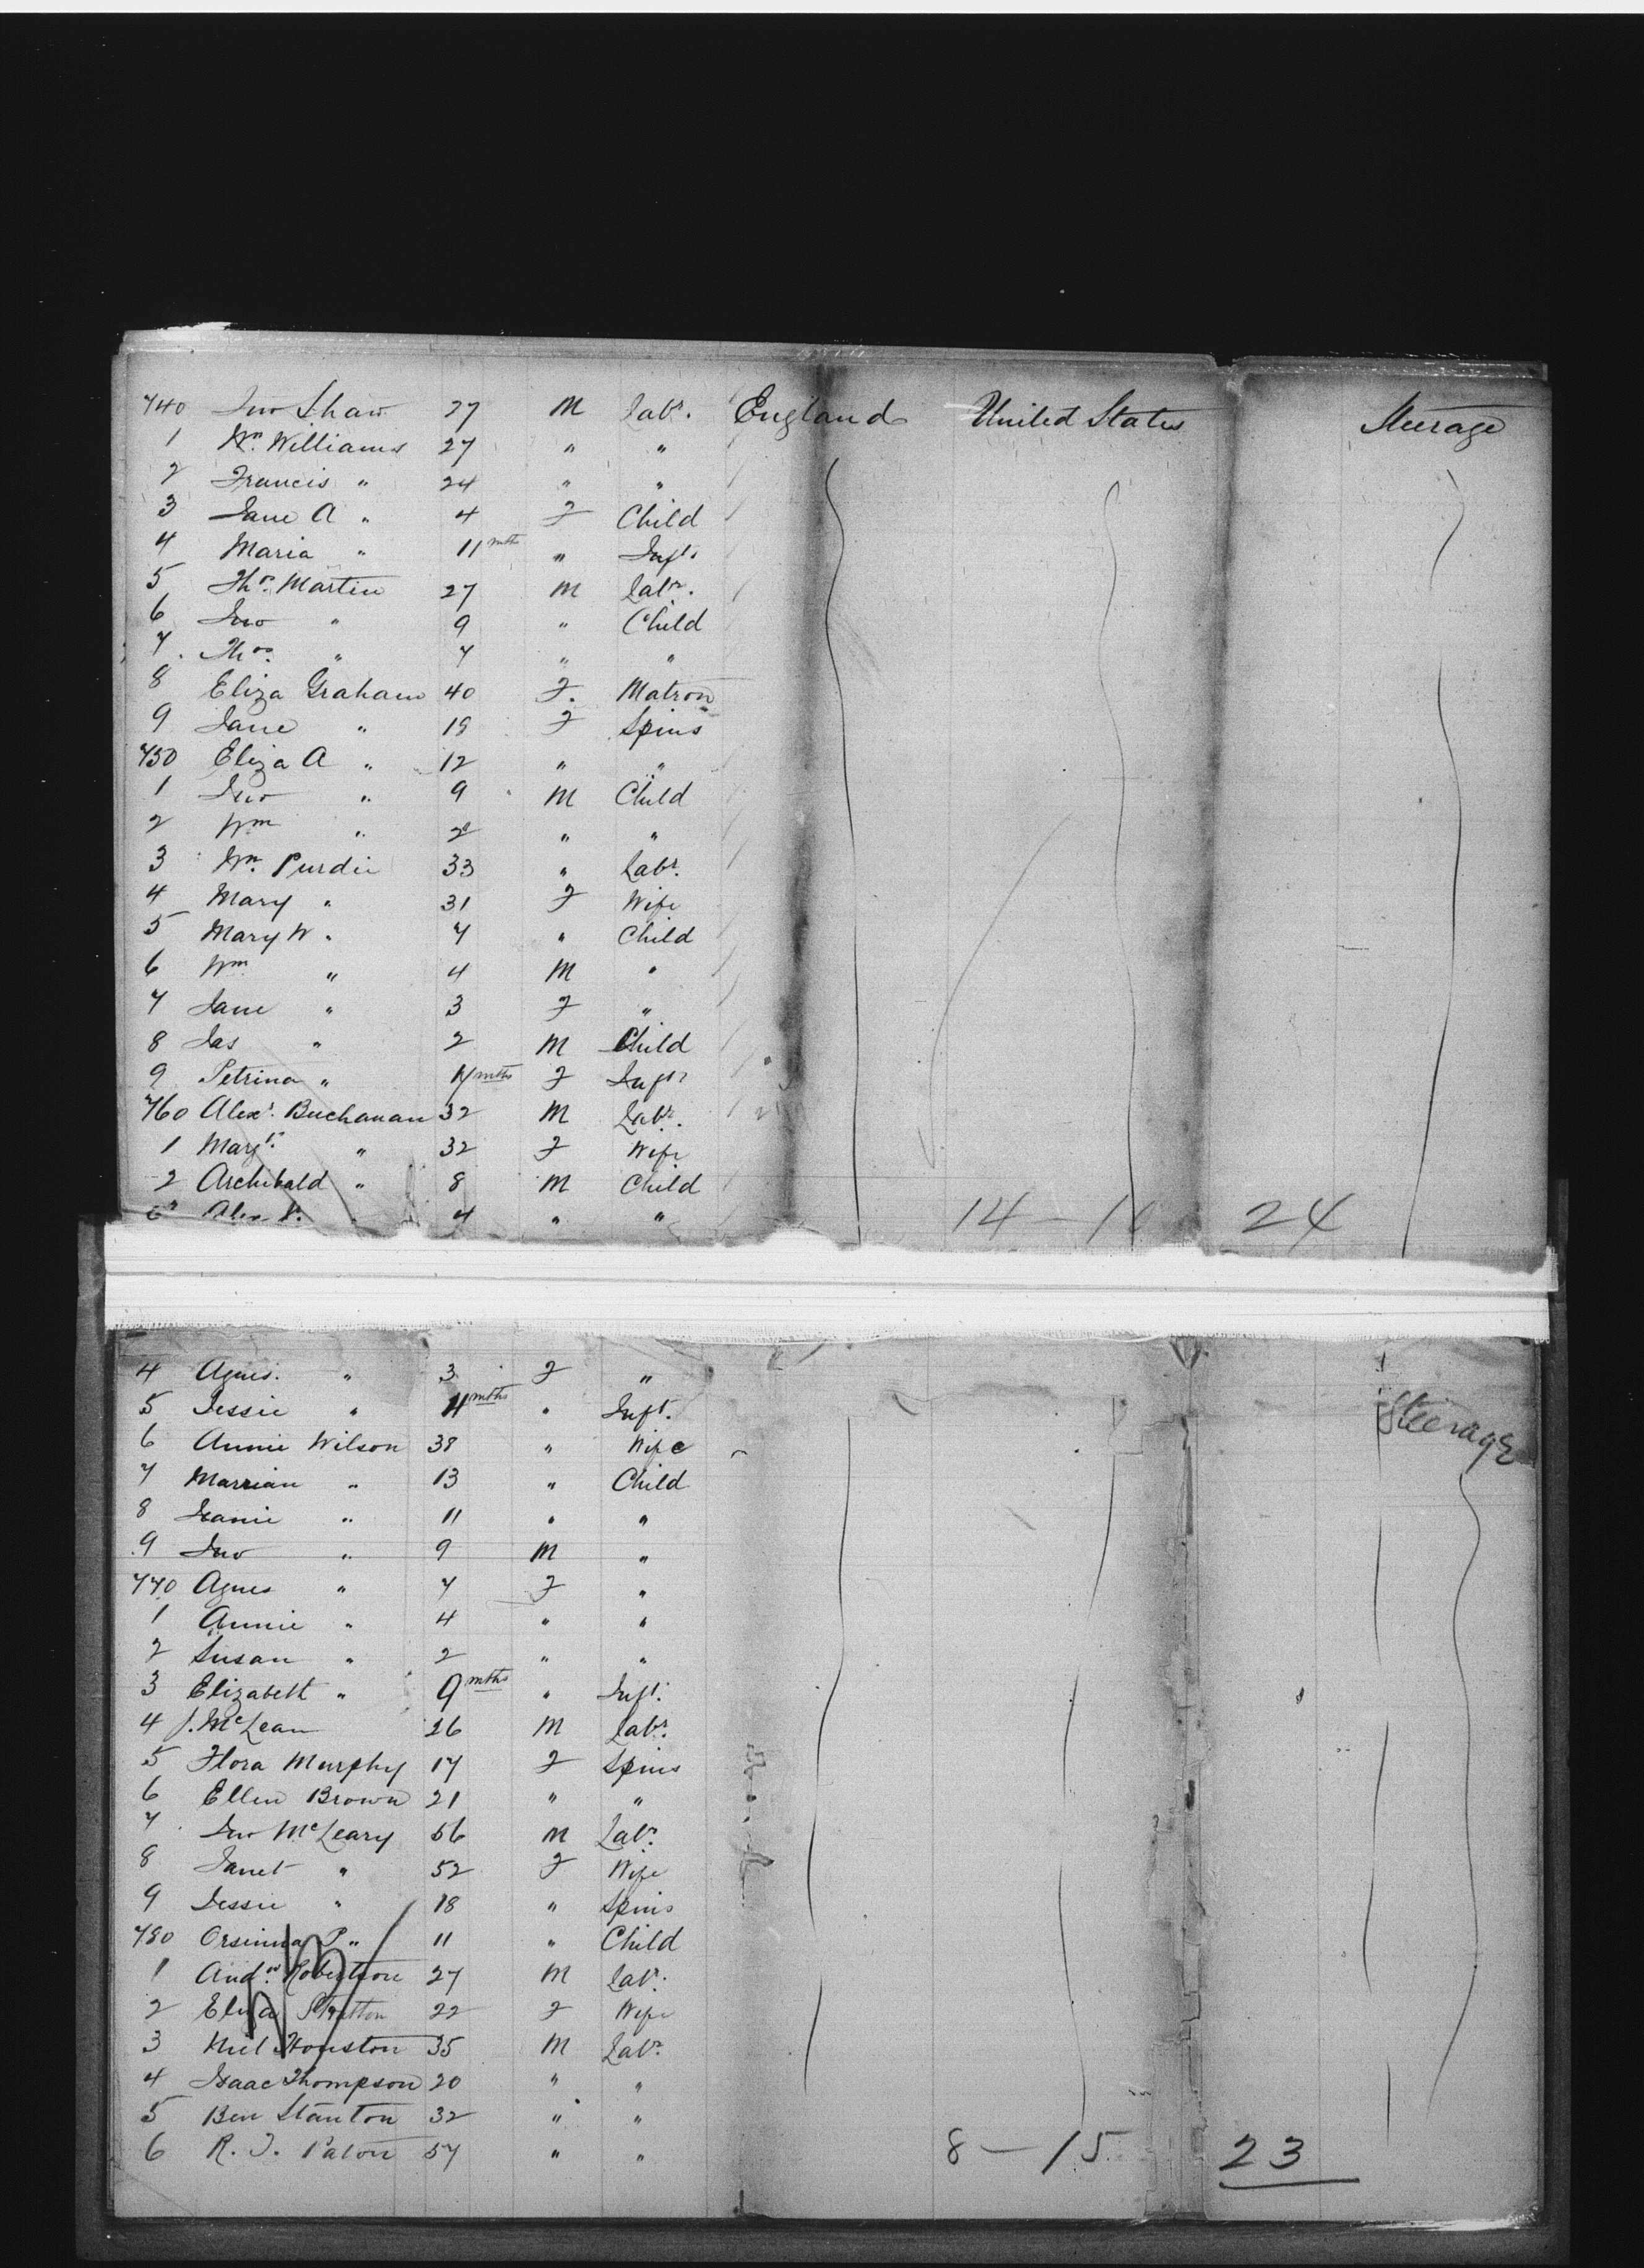 740 Jno Shaw 27 M Labr. England United States Steerage
1 Wm. Williams 27 " "
2 Francis " 24 " "
3 Jane A " 4 F Child
4 Maria " 11 mths " Inft.
5 Thos. Martin 27 M Labr.
6 Jno " 9 " Child
7 Thos. " 7 " "
8 Eliza Graham 40 F. Matron
9 Jane " 19 F Spins
750 Eliza A " 12 " "
1 Jno " 9 M Child
2 Wm " 2 " "
3 Wm. Purdie 33 " Labr.
4 Mary " 31 F Wife
5 Mary W " 7 " Child
6 Wm " 4 M "
7 Jane " 3 F "
8 Jas " 2 M Child
9 Petrina " mths F Inft
760 Alexr. Buchanan 32 M Labr.
1 Margt. " 32 F Wife
2 Archibald " 8 M Child
3 Alexr. " 4 " "
14 – 24
4 Agnes. " 3 F "
5 Jessie " 11 mths " Inft.
Steerage
6 Annie Wilson 38 " Wife
7 Marrian " 13 " Child
8 Jeanie " 11 " "
9 Jno " 9 M "
770 Agnes " 7 F "
1 Annie " 4 " "
2 Susan " 2 " "
3 Elizabeth " 9 mths " Inft.
4 J. McLean 26 M Labr.
5 Flora Murphy 17 F Spins
6 Ellen Brown 21 " "
7 Jno McLeary 56 M Labr.
8 Janet " 52 F Wife
9 Jessie " 18 " Spins
780 Orsinna P " 11 " Child
1 Andw. Robertson 27 M Labr.
2 Eliza Stratton 22 F Wife
3 Niel Houston 35 M Labr.
4 Isaac Thompson 20 " "
5 Ben Stanton 32 " "
6 R. J. Paton 57 " "
8 – 15 23